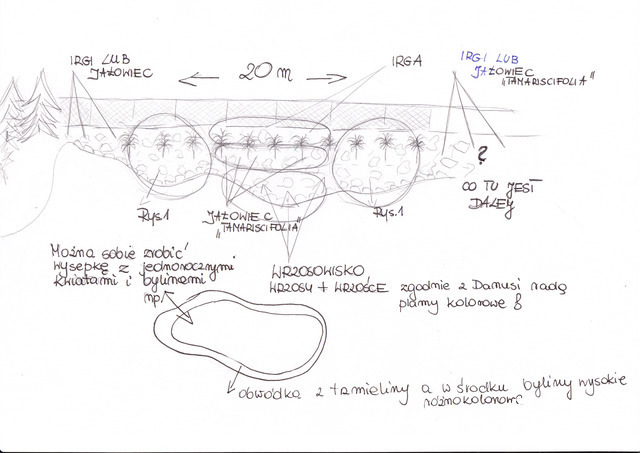 IRGI LUB
JAŁOWIEC
20 m
IRGA
IRGI LUB
JAŁOWIEC
"TAMARISCIFOLIA"
?
CO TU JEST
DALEJ
Rys.1
JAŁOWIEC
"TAMARISCIFOLIA"
Rys.1
Można sobie zrobić
wysepkę z jednorocznymi
kwiatami i bylinami
np.
WRZOSOWISKO
WRZOSY + WRZOŚCE zgodnie z Danusi radą
plamy kolorowe
obwódka z tamieliny a w środku byliny wysokie
różnokolorowe